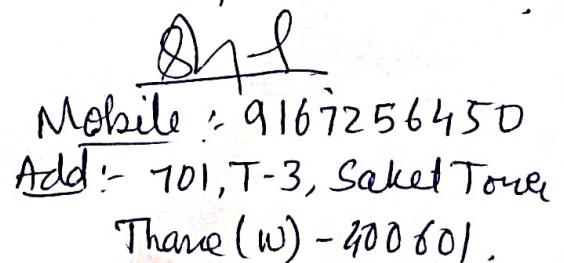 Mobile :- 9167256450
Add :- 701, T-3, Saket Tower
Thane (W) - 400601.